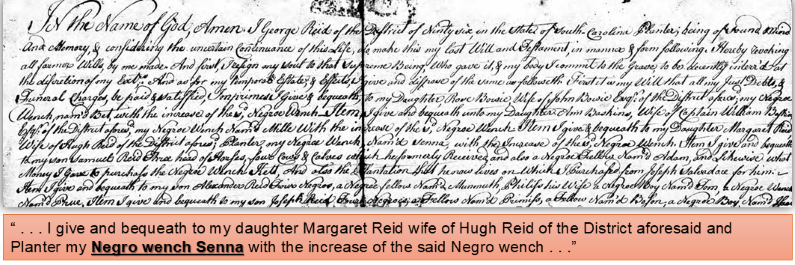 In the Name of God, Amen. I George Reid of the District of Ninty six, in the State of South Carolina Planter, being of Sound mind
And Memory, & considering the uncertain Continuance of this Life, do make this my last Will and Testament, in manner & form following. Hereby revoking
all former Wills, by me made. And first, I resign my Soul to that Supreme Being Who gave it, & my body I commit to the Grave, to be decently interr'd at
the discretion of my Extrs; And as for my temporal Estate, & Effects, I give and dispose of the same as followeth. First it is my Will that all my Just Debts, &
Funeral Charges, be paid & satisfied, Imprimis I Give & bequeath, to my Daughter Rose Bowie Wife of John Bowie Esqr; of the District afores,d my Negroe
Wench, nam'd Bet, with the increase of the sd, Negroe Wench Item I give and bequeath unto my Daughter Ann Baskins, Wife of Captain William Baskins
Esqr, of the District afores,d my Negroe Wench Nam'd Mille With the increase of the s,d Negroe Wench Item I give & bequeath to my Daughter Margaret Reid
Wife of Hugh Reid of the District afores,d Planter, my Negroe Wench Nam'd Senna, with the Increase of the s,d Negroe Wench. Item I give and bequeath
to my son Samuel Reid Three head of Horses, four Cows & Calves which he formerly Received, and also a Negroe Fellow Nam'd Adam, and Likewise what
Money I gave to purchase the Negroe Wench Hell, And also the Plantation that he now lives on Which I Purchased from Joseph for him.
Item I give and bequeath to my son Alexander Reid Negroes, a Negroe fellow Nam'd Mummuth, Philliss his Wife a Negroe Boy Nam'd Tom, a Negroe Wench
Nam'd Prue, Item I give and bequeath to my son Joseph Reid, Four Negroes, a Fellow Nam'd Primiss, a Fellow Nam'd a Negroe Boy, Nam'd
“ . . . I give and bequeath to my daughter Margaret Reid wife of Hugh Reid of the District aforesaid and
Planter my Negro wench Senna with the increase of the said Negro wench . . .”